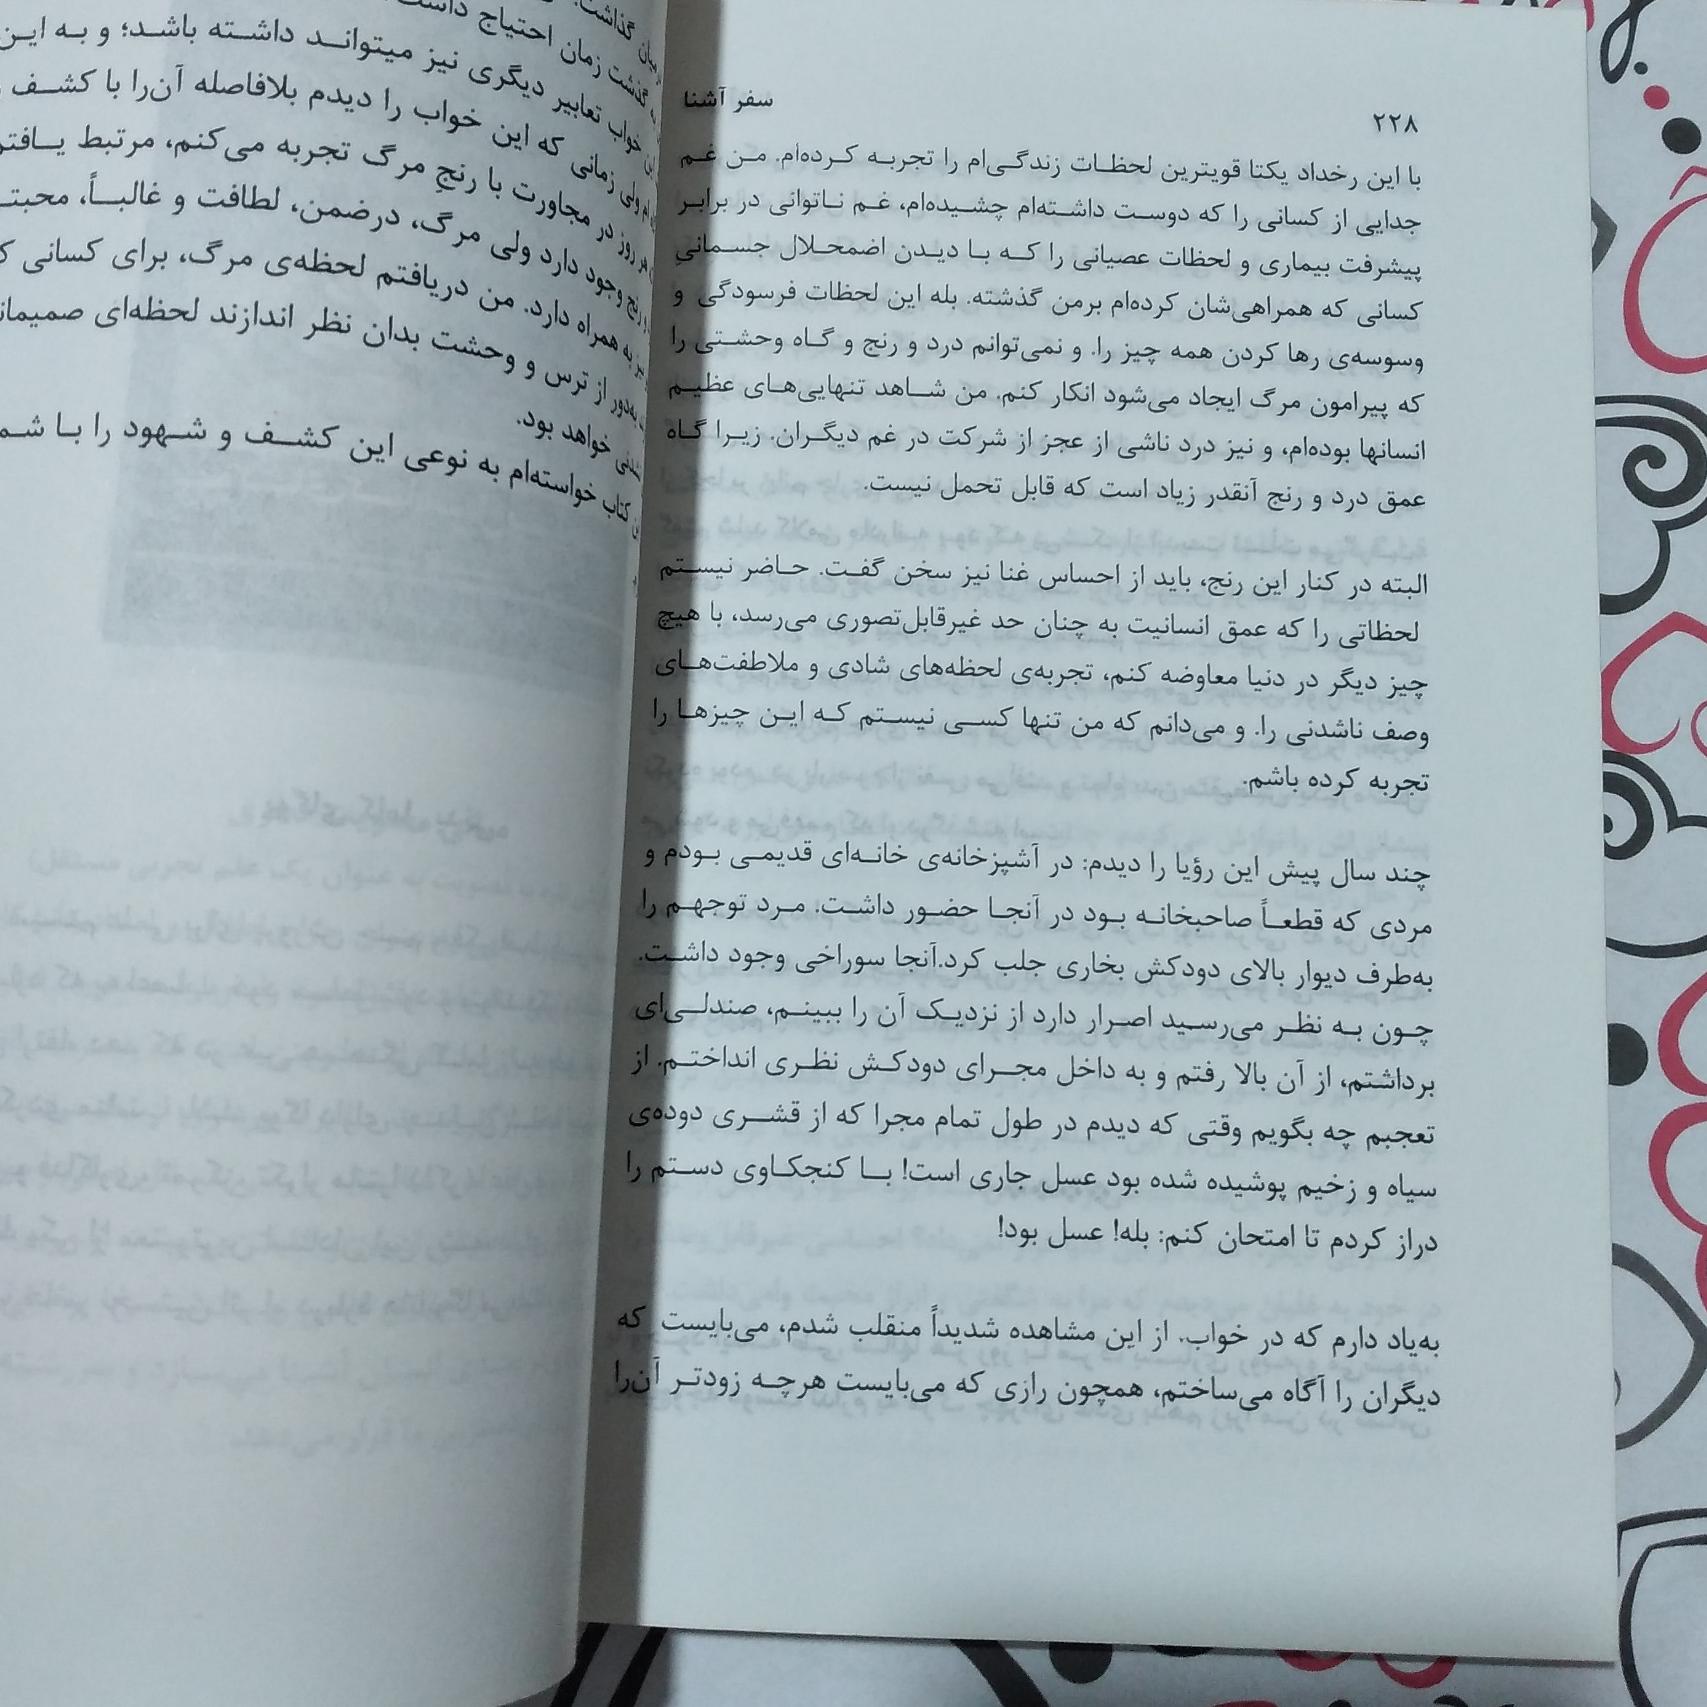 ۲۲۸
سفر آشنا
با این رخداد یکتا قویترین لحظات زندگی‌ام را تجربه کرده‌ام. من غم
جدایی از کسانی را که دوست داشته‌ام چشیده‌ام، غم ناتوانی در برابر
پیشرفت بیماری و لحظات عصیانی را که با دیدن اضمحلال جسمانیِ
کسانی که همراهی‌شان کرده‌ام برمن گذشته. بله این لحظات فرسودگی و
وسوسه‌ی رها کردن همه چیز را. و نمی‌توانم درد و رنج و گاه وحشتی را
که پیرامون مرگ ایجاد می‌شود انکار کنم. من شاهد تنهایی‌های عظیم
انسانها بوده‌ام، و نیز درد ناشی از عجز از شرکت در غم دیگران. زیرا گاه
عمق درد و رنج آنقدر زیاد است که قابل تحمل نیست.
البته در کنار این رنج، باید از احساس غنا نیز سخن گفت. حاضر نیستم
لحظاتی را که عمق انسانیت به چنان حد غیرقابل‌تصوری می‌رسد، با هیچ
چیز دیگر در دنیا معاوضه کنم، تجربه‌ی لحظه‌های شادی و ملاطفت‌های
وصف ناشدنی را. و می‌دانم که من تنها کسی نیستم که این چیزها را
تجربه کرده باشم.
چند سال پیش این رؤیا را دیدم: در آشپزخانه‌ی خانه‌ای قدیمی بودم و
مردی که قطعاً صاحبخانه بود در آنجا حضور داشت. مرد توجهم را
به‌طرف دیوار بالای دودکش بخاری جلب کرد.آنجا سوراخی وجود داشت.
چون به نظر می‌رسید اصرار دارد از نزدیک آن را ببینم، صندلی‌ای
برداشتم، از آن بالا رفتم و به داخل مجرای دودکش نظری انداختم. از
تعجبم چه بگویم وقتی که دیدم در طول تمام مجرا که از قشری دوده‌ی
سیاه و زخیم پوشیده شده بود عسل جاری است! با کنجکاوی دستم را
دراز کردم تا امتحان کنم: بله! عسل بود!
به‌یاد دارم که در خواب. از این مشاهده شدیداً منقلب شدم، می‌بایست که
دیگران را آگاه می‌ساختم، همچون رازی که می‌بایست هرچه زودتر آن‌را
گذاشت.
گذشت زمان احتیاج داشت
خواب تعابیر دیگری نیز میتواند داشته باشد؛ و به این
ولی زمانی که این خواب را دیدم بلافاصله آن‌را با کشف
هر روز در مجاورت با رنجِ مرگ تجربه می‌کنم، مرتبط
رنج وجود دارد ولی مرگ، درضمن، لطافت و غالباً،
به همراه دارد. من دریافتم لحظه‌ی مرگ، برای کسانی
به‌دور از ترس و وحشت بدان نظر اندازند لحظه‌ای
خواهد بود.
کتاب خواسته‌ام به نوعی این کشف و شهود را با